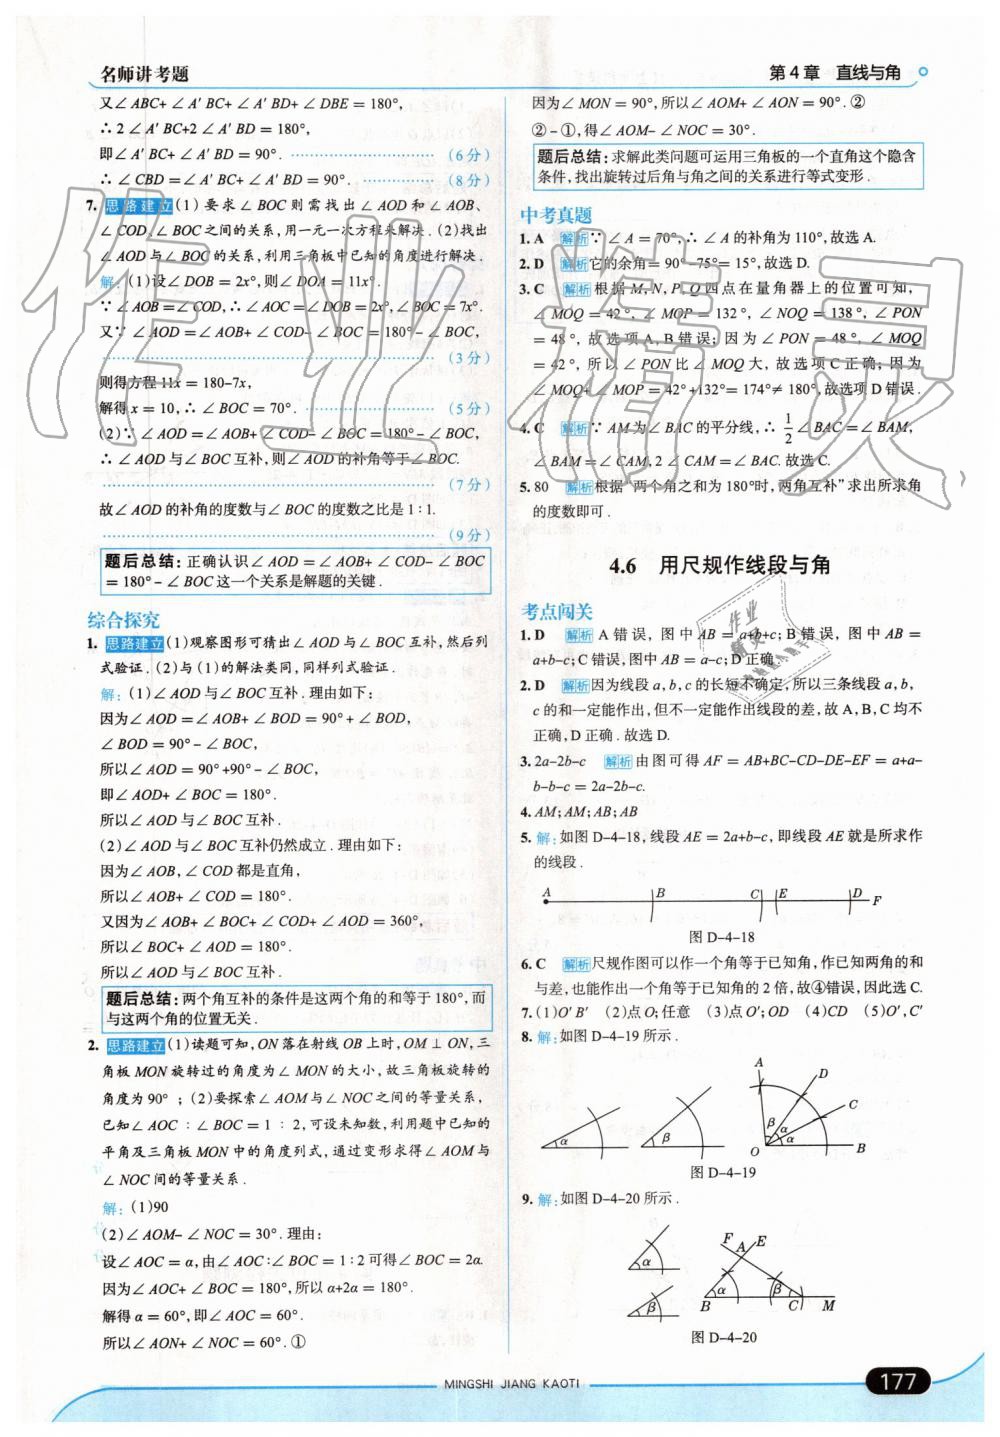 名师讲考题
第4章 直线与角
又∠ABC+∠A′BC+∠A′BD+∠DBE=180°,
∴2∠A′BC+2∠A′BD=180°,
即∠A′BC+∠A′BD=90°. (6分)
∴∠CBD=∠A′BC+∠A′BD=90°. (8分)
7. 思路建立 (1)要求∠BOC则需找出∠AOD和∠AOB、
∠COD、∠BOC之间的关系,用一元一次方程来解决.(2)找出
∠AOD与∠BOC的关系,利用三角板中已知的角度进行解决.
解:(1)设∠DOB=2x°,则∠DOA=11x°.
∵∠AOB=∠COD,∴∠AOC=∠DOB=2x°,∠BOC=7x°.
又∵∠AOD=∠AOB+∠COD-∠BOC=180°-∠BOC,
(3分)
则得方程11x=180-7x,
解得x=10,∴∠BOC=70°. (5分)
(2)∵∠AOD=∠AOB+∠COD-∠BOC=180°-∠BOC,
∴∠AOD与∠BOC互补,则∠AOD的补角等于∠BOC.
(7分)
故∠AOD的补角的度数与∠BOC的度数之比是1:1.
(9分)
题后总结:正确认识∠AOD=∠AOB+∠COD-∠BOC
=180°-∠BOC这一个关系是解题的关键.
综合探究
1. 思路建立 (1)观察图形可猜出∠AOD与∠BOC互补,然后列
式验证.(2)与(1)的解法类同,同样列式验证.
解:(1)∠AOD与∠BOC互补.理由如下:
因为∠AOD=∠AOB+∠BOD=90°+∠BOD,
∠BOD=90°-∠BOC,
所以∠AOD=90°+90°-∠BOC,
即∠AOD+∠BOC=180°.
所以∠AOD与∠BOC互补.
(2)∠AOD与∠BOC互补仍然成立.理由如下:
因为∠AOB,∠COD都是直角,
所以∠AOB+∠COD=180°.
又因为∠AOB+∠BOC+∠COD+∠AOD=360°,
所以∠BOC+∠AOD=180°.
所以∠AOD与∠BOC互补.
题后总结:两个角互补的条件是这两个角的和等于180°,而
与这两个角的位置无关.
2. 思路建立 (1)读题可知,ON落在射线OB上时,OM⊥ON,三
角板MON旋转过的角度为∠MON的大小,故三角板旋转的
角度为90°;(2)要探索∠AOM与∠NOC之间的等量关系,
已知∠AOC:∠BOC=1:2,可设未知数,利用题中已知的
平角及三角板MON中的角度列式,通过变形求得∠AOM与
∠NOC间的等量关系.
解:(1)90
(2)∠AOM-∠NOC=30°.理由:
设∠AOC=α,由∠AOC:∠BOC=1:2可得∠BOC=2α.
因为∠AOC+∠BOC=180°,所以α+2α=180°.
解得α=60°,即∠AOC=60°.
所以∠AON+∠NOC=60°.①
因为∠MON=90°,所以∠AOM+∠AON=90°.②
②-①,得∠AOM-∠NOC=30°.
题后总结:求解此类问题可运用三角板的一个直角这个隐含
条件,找出旋转过后角与角之间的关系进行等式变形.
中考真题
1. A 解析 ∵∠A=70°,∴∠A的补角为110°,故选A.
2. D 解析 它的余角=90°-75°=15°,故选D.
3. C 解析 根据M,N,P,Q四点在量角器上的位置可知,
∠MOQ=42°,∠MOP=132°,∠NOQ=138°,∠PON
=48°,故选项A、B错误;因为∠PON=48°,∠MOQ
=42°,所以∠PON比∠MOQ大,故选项C正确;因为
∠MOQ+∠MOP=42°+132°=174°≠180°,故选项D错误.
4. C 解析 ∵AM为∠BAC的平分线,∴1/2∠BAC=∠BAM,
∠BAM=∠CAM,2∠CAM=∠BAC.故选C.
5. 80 解析 根据"两个角之和为180°时,两角互补"求出所求角
的度数即可.
4.6 用尺规作线段与角
考点闯关
1. D 解析 A错误,图中AB=a+b+c;B错误,图中AB=
a+b-c;C错误,图中AB=a-c;D正确.
2. D 解析 因为线段a,b,c的长短不确定,所以三条线段a,b,
c的和一定能作出,但不一定能作出线段的差,故A,B,C均不
正确,D正确.故选D.
3. 2a-2b-c 解析 由图可得AF=AB+BC-CD-DE-EF=a+a-
b-b-c=2a-2b-c.
4. AM;AM;AB;AB
5. 解:如图D-4-18,线段AE=2a+b-c,即线段AE就是所求作
的线段.
A B C E D F
图D-4-18
6. C 解析 尺规作图可以作一个角等于已知角,作已知两角的和
与差,也能作出一个角等于已知角的2倍,故④错误,因此选C.
7. (1)O′B′ (2)点O;任意 (3)点O′;OD (4)CD (5)O′,C′
8. 解:如图D-4-19所示.
α β A D C β α α O B
图D-4-19
9. 解:如图D-4-20所示.
α β F A E α β B C M
图D-4-20
MINGSHI JIANG KAOTI
177
作业精灵
作业
精灵